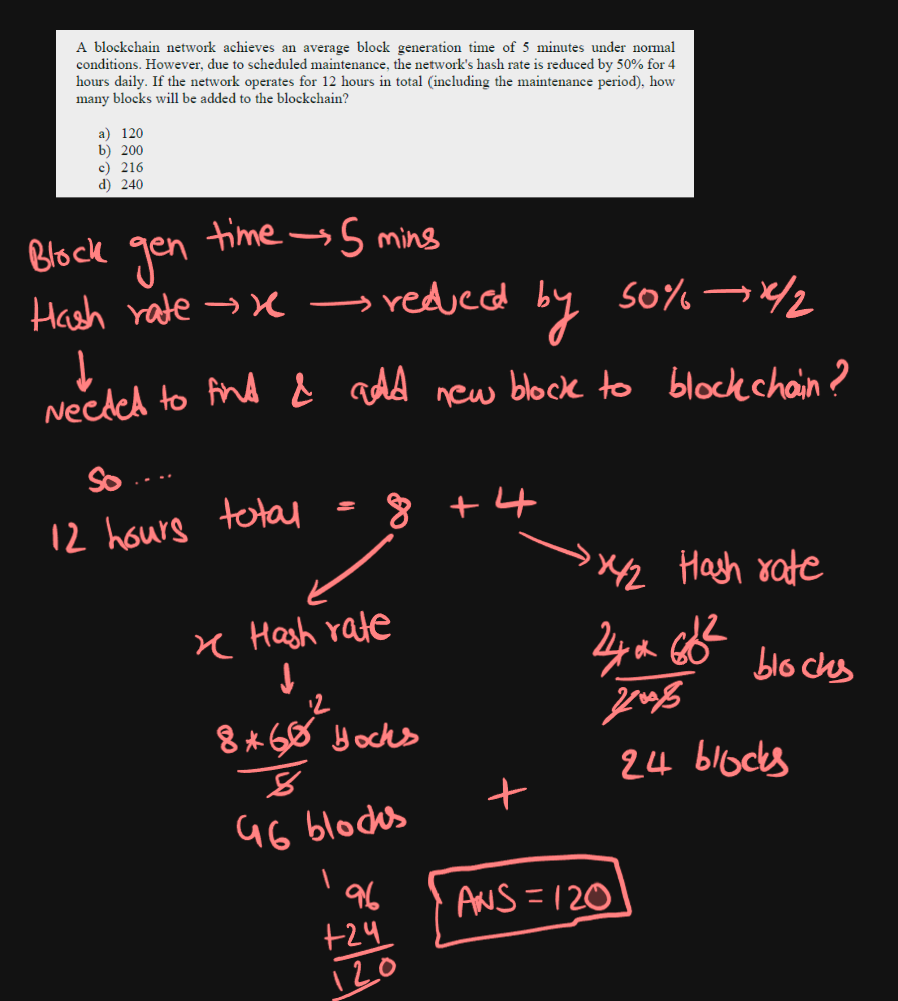 A blockchain network achieves an average block generation time of 5 minutes under normal
conditions. However, due to scheduled maintenance, the network's hash rate is reduced by 50% for 4
hours daily. If the network operates for 12 hours in total (including the maintenance period), how
many blocks will be added to the blockchain?
a) 120
b) 200
c) 216
d) 240
Block gen time → 5 mins
Hash rate → x → reduced by 50% → x/2
↓
Needed to find & add new block to blockchain?
So ....
12 hours total = 8 + 4
x/2 Hash rate
x Hash rate
↓
4 * 60 12 blocks
2 * 5
8 * 60 12 blocks
5
24 blocks
+
96 blocks
1
96
+24
120
ANS = 120